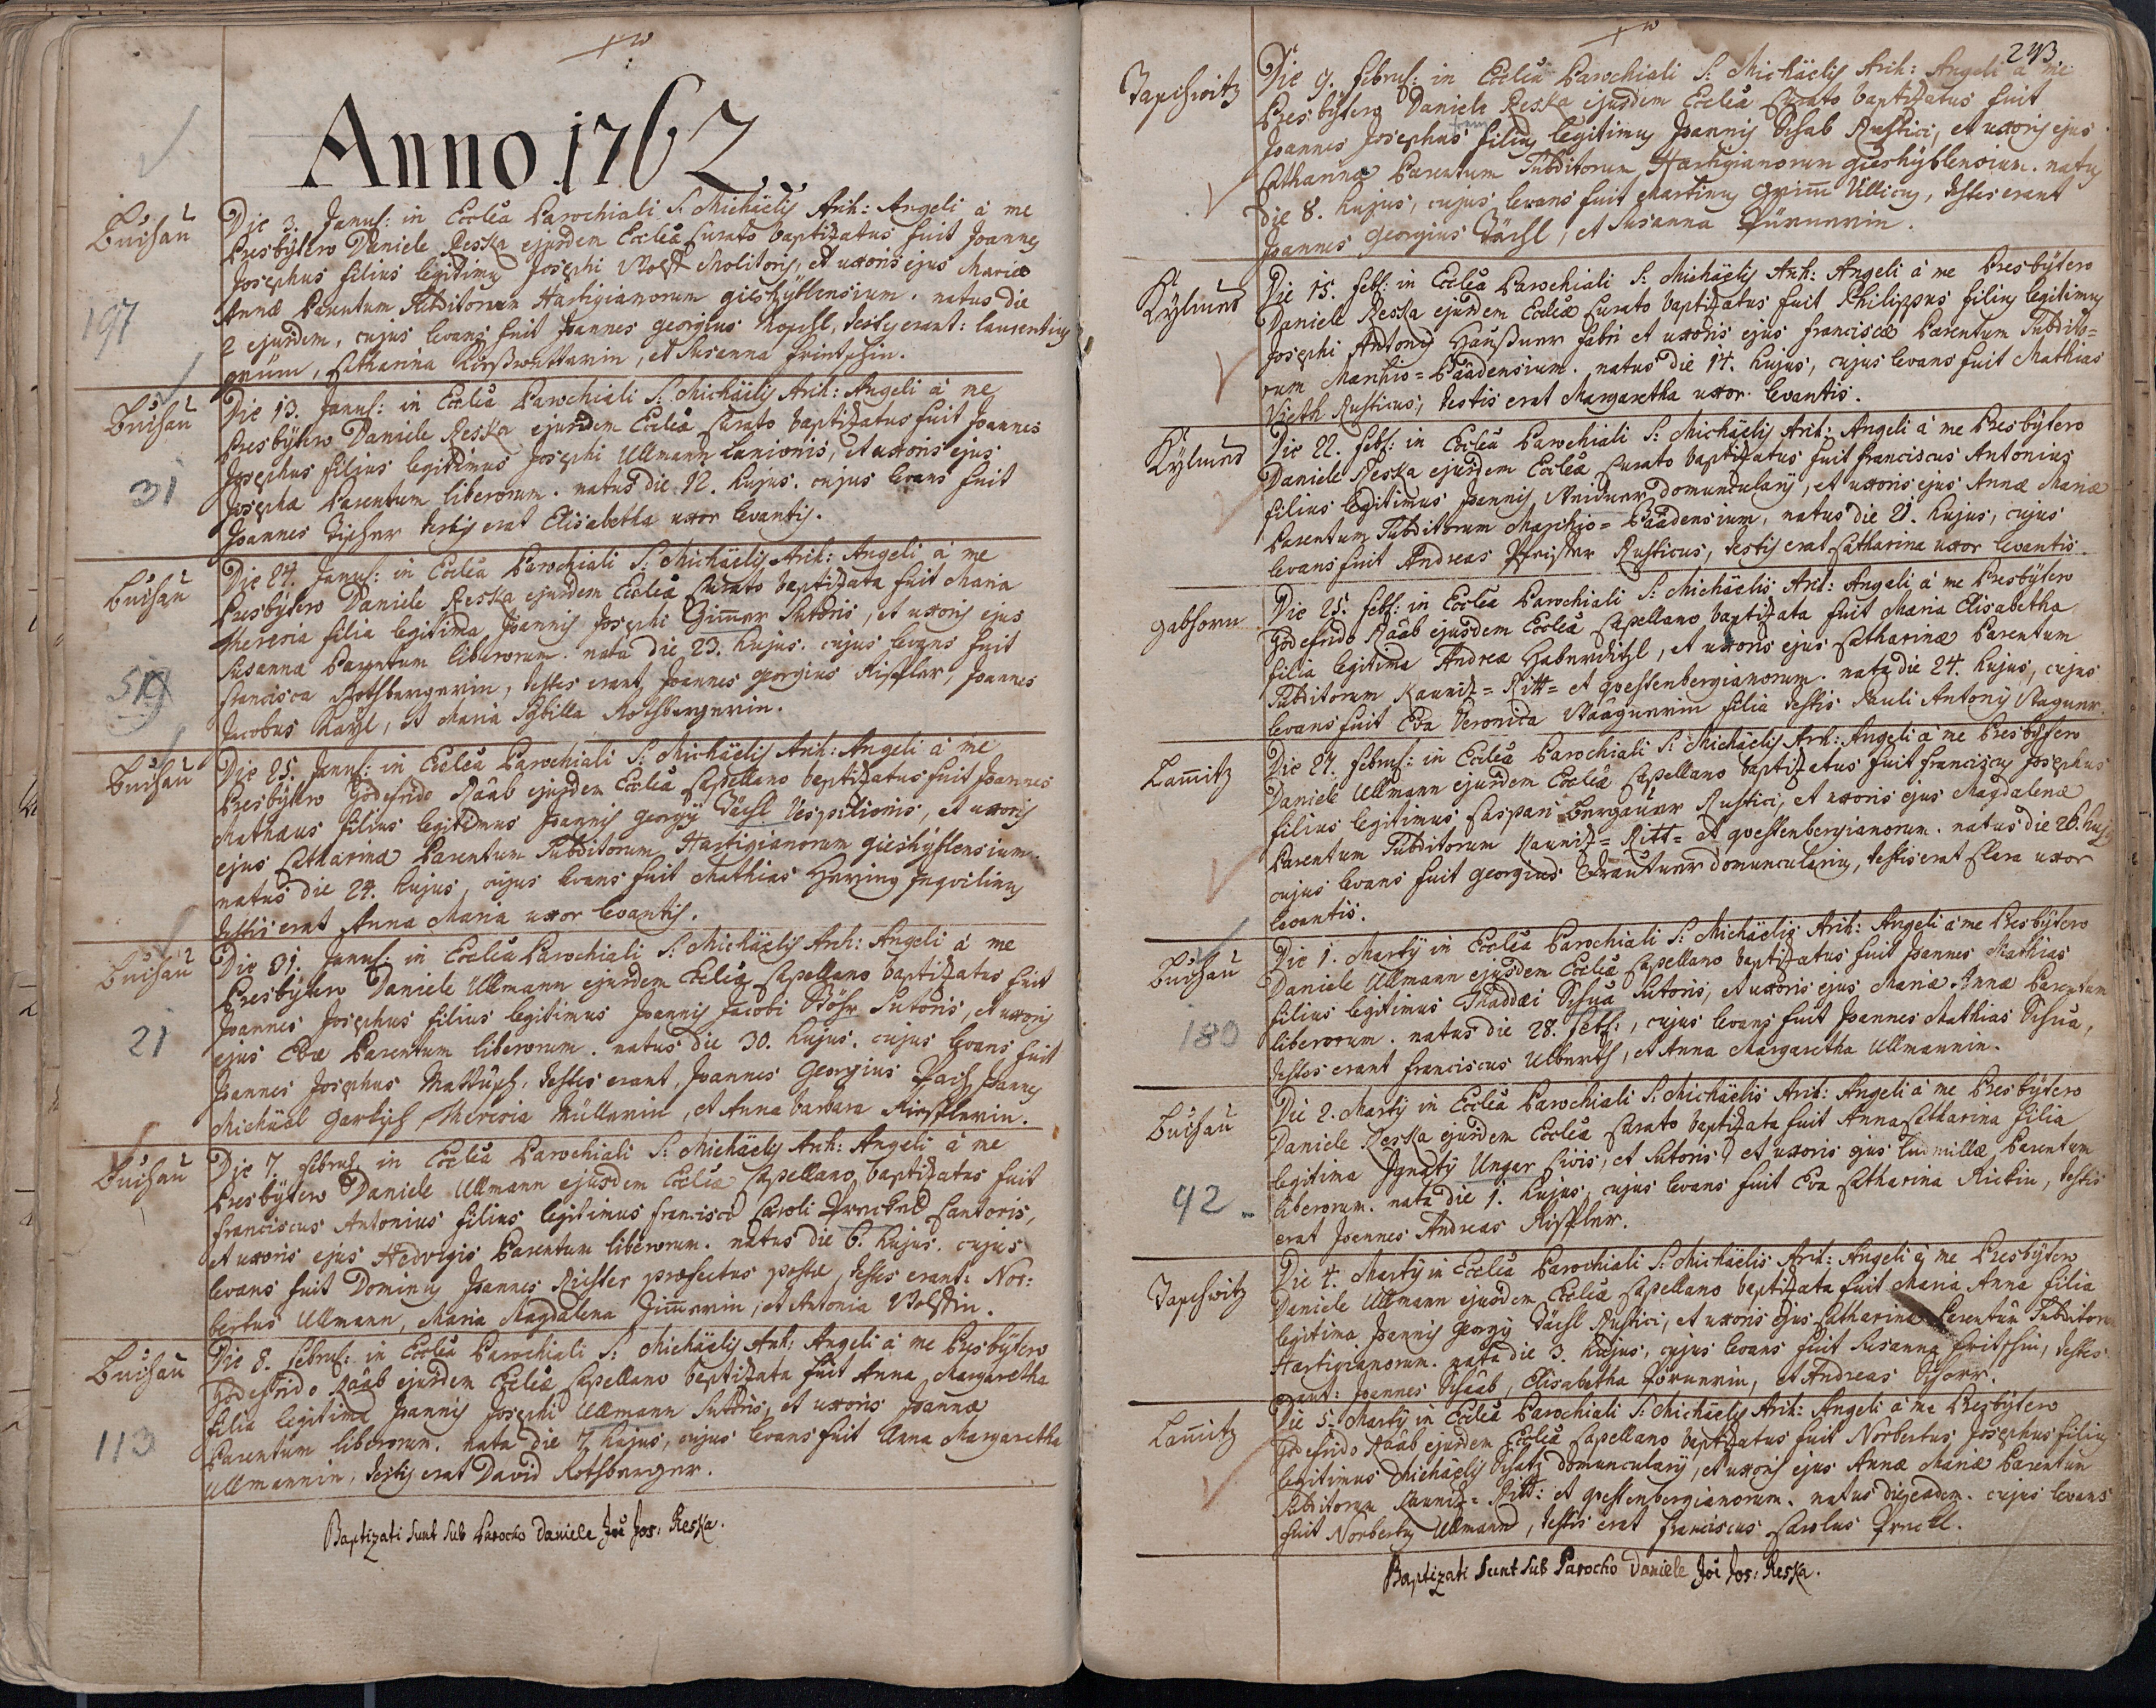 Anno 1762.
Buchau
197
Die 3. Januar: in Ecclea Parochiali S: Michäelis Arch: Angeli à me
Presbytero Daniele Reska ejusdem Eccleæ Curato baptizatus fuit Joannes
Josephus filius legitimus Josephi Molitoris, et uxoris ejus Mariæ
Annæ Parentum Subditorum Hartigianorum gieshyblensium. natus die
2 ejusdem, cujus levans fuit Joannes georgius testes erant: laurentius
grüm, Catharina et Susanna
Buchau
31
Die 13. Januar: in Ecclea Parochiali S: Michäelis Arch: Angeli à me
Presbytero Daniele Reska ejusdem Eccleæ Curato baptizatus fuit Joannes
Josephus filius legitimus Josephi Ullmann Lanionis, et uxoris ejus
Josepha Parentum liberorum. natus die 12. hujus. cujus levans fuit
Joannes testis erat Elisabetha uxor levantis.
Buchau
Die 24. Januar: in Ecclea Parochiali S: Michäelis Arch: Angeli à me
Presbytero Daniele Reska ejusdem Eccleæ Curato baptizata fuit Maria
Theresia filia legitima Joannis Josephi Zimmer Sutoris, et uxoris ejus
Susanna Parentum liberorum. nata die 23. hujus. cujus levans fuit
Francisca Rothbergerin, testes erant Joannes georgius Rippler, Joannes
Jacobus et Maria Sybilla Rothbergerin.
Buchau
Die 25. Januar: in Ecclea Parochiali S: Michäelis Arch: Angeli à me
Presbytero Godefrido Raab ejusdem Eccleæ Capellano baptizatus fuit Joannes
Mathæus filius legitimus Joannis georgy Dächl Vespilionis, et uxoris
ejus Catharinæ Parentum Subditorum Hartigianorum gieshyblensium
natus die 24. hujus, cujus levans fuit Mathias Hering Inquilinus
testis erat Anna Maria uxor levantis.
Buchau
21
Die 31. Januar: in Ecclea Parochiali S: Michäelis Arch: Angeli à me
Presbytero Daniele Ullmann ejusdem Eccleæ Capellano baptizatus fuit
Joannes Josephus filius legitimus Joannis Jacobi Stöhr Sutoris, et uxoris
ejus Evæ Parentum liberorum. natus die 30. hujus. cujus levans fuit
Joannes Josephus testes erant, Joannes Georgius Joannes
Michäel Theresia Müllerin, et Anna barbara Ripplerin.
Buchau
Die 7. Februar: in Ecclea Parochiali S: Michäelis Arch: Angeli à me
Presbytero Daniele Ullmann ejusdem Eccleæ Capellano baptizatus fuit
Franciscus Antonius filius legitimus Francisci Caroli Cantoris,
et uxoris ejus Hedvigis Parentum liberorum. natus die 6. hujus. cujus
levans fuit Dominus Joannes Richter præfectus postæ, testes erant: Nor:
bertus Ullmann, Maria Magdalena Zimmerin, et Antonia
Buchau
113
Die 8. Februar: in Ecclea Parochiali S: Michäelis Arch: Angeli à me Presbytero
Godefrido Raab ejusdem Eccleæ Capellano baptizata fuit Anna Margaretha
filia legitima Joannis Josephi Ullmann Sutoris, et uxoris Joannæ
Parentum liberorum. nata die 7. hujus, cujus levans fuit Anna Margaretha
Ullmannin, testis erat David Rothberger.
Baptizati sunt sub Parocho Daniele Joi Jos: Reska.
243
Die 9. Februar: in Ecclea Parochiali S: Michäelis Arch: Angeli à me
Presbytero Daniele Reska ejusdem Eccleæ Curato baptizatus fuit
Joannes Josephus filius legitimus Joannis Schab Rustici, et uxoris ejus
Catharina Parentum Subditorum Hartigianorum gieshyblensium. natus
die 8. hujus, cujus levans fuit Martinus Grimm Villicus, testes erant
Joannes Georgius Dächl, et Susanna
Kylmes
Die 15. feb: in Ecclea Parochiali S: Michäelis Arch: Angeli à me Presbytero
Daniele Reska ejusdem Eccleæ Curato baptizatus fuit Philippus filius legitimus
Josephi Antony Haußner fabri et uxoris ejus Franciscæ Parentum Subdito=
rum Marchio=Baadensium. natus die 14. hujus, cujus levans fuit Mathias
Vieth Rusticus, testis erat Margaretha uxor levantis.
Kylmes
Die 22. feb: in Ecclea Parochiali S: Michäelis Arch: Angeli à me Presbytero
Daniele Reska ejusdem Eccleæ Curato baptizatus fuit Franciscus Antonius
filius legitimus Joannis domuncularij, et uxoris ejus Annæ Mariæ
Parentum Subditorum Marchio=Baadensium, natus die 21. hujus, cujus
levans fuit Andreas Rusticus, testis erat Catharina uxor levantis.
gabhorn
Die 25. feb: in Ecclea Parochiali S: Michäelis Arch: Angeli à me Presbytero
Godefrido Raab ejusdem Eccleæ Capellano baptizata fuit Maria Elisabetha
filia legitima Andreæ Haberditzl, et uxoris ejus Catharinæ Parentum
Subditorum Kaunitz=Ritt=et questenbergianorum. nata die 24. hujus, cujus
levans fuit Eva Veronica Waagnerin filia testis Pauli Antonij Wagner.
Lam̄itz
Die 27. Februar: in Ecclea Parochiali S: Michäelis Arch: Angeli à me Presbytero
Daniele Ullmann ejusdem Eccleæ Capellano baptizatus fuit Franciscus Josephus
filius legitimus Caspari Bergauer Rustici, et uxoris ejus Magdalenæ
Parentum Subditorum Kaunitz=Ritt=et questenbergianorum. natus die 26. huj:
cujus levans fuit georgius domuncularius, testis erat Clara uxor
levantis.
Buchau
180
Die 1. Martij in Ecclea Parochiali S: Michäelis Arch: Angeli à me Presbytero
Daniele Ullmann ejusdem Eccleæ Capellano baptizatus fuit Joannes Mathias
filius legitimus Thaddæi Schua Sutoris, et uxoris ejus Mariæ Annæ Parentum
liberorum. natus die 28. feb:, cujus levans fuit Joannes Mathias Schua,
testes erant Franciscus Ulberth, et Anna Margaretha Ullmannin.
Buchau
42
Die 2. Martij in Ecclea Parochiali S: Michäelis Arch: Angeli à me Presbytero
Daniele Reska ejusdem Eccleæ Curato baptizata fuit Anna Catharina filia
legitima Ignatij Unger Civis, et Sutoris et uxoris ejus Ludmillæ Parentum
liberorum. nata die 1. hujus, cujus levans fuit Eva Catharina Rickin, testis
erat Joannes Andreas Rippler.
Die 4. Martij in Ecclea Parochiali S: Michäelis Arch: Angeli à me Presbytero
Daniele Ullmann ejusdem Eccleæ Capellano baptizata fuit Maria Anna filia
legitima Joannis Georgij Dächl Rustici, et uxoris ejus Catharina Parentum Subditorum
Hartigianorum. nata die 3. hujus, cujus levans fuit Susanna testes
erant: Joannes Schaab, Elisabetha et Andreas
Lam̄itz
Die 5. Martij in Ecclea Parochiali S: Michäelis Arch: Angeli à me Presbytero
Godefrido Raab ejusdem Eccleæ Capellano baptizatus fuit Norbertus Josephus filius
legitimus Michäelis Schatz domuncularij, et uxoris ejus Annæ Mariæ Parentum
Subditorum Kaunitz=Ritt: et questenbergianorum. natus die eadem. cujus levans
fuit Norbertus Ullmann, testis erat Franciscus Carolus
Baptizati sunt sub Parocho Daniele Joi Jos: Reska.